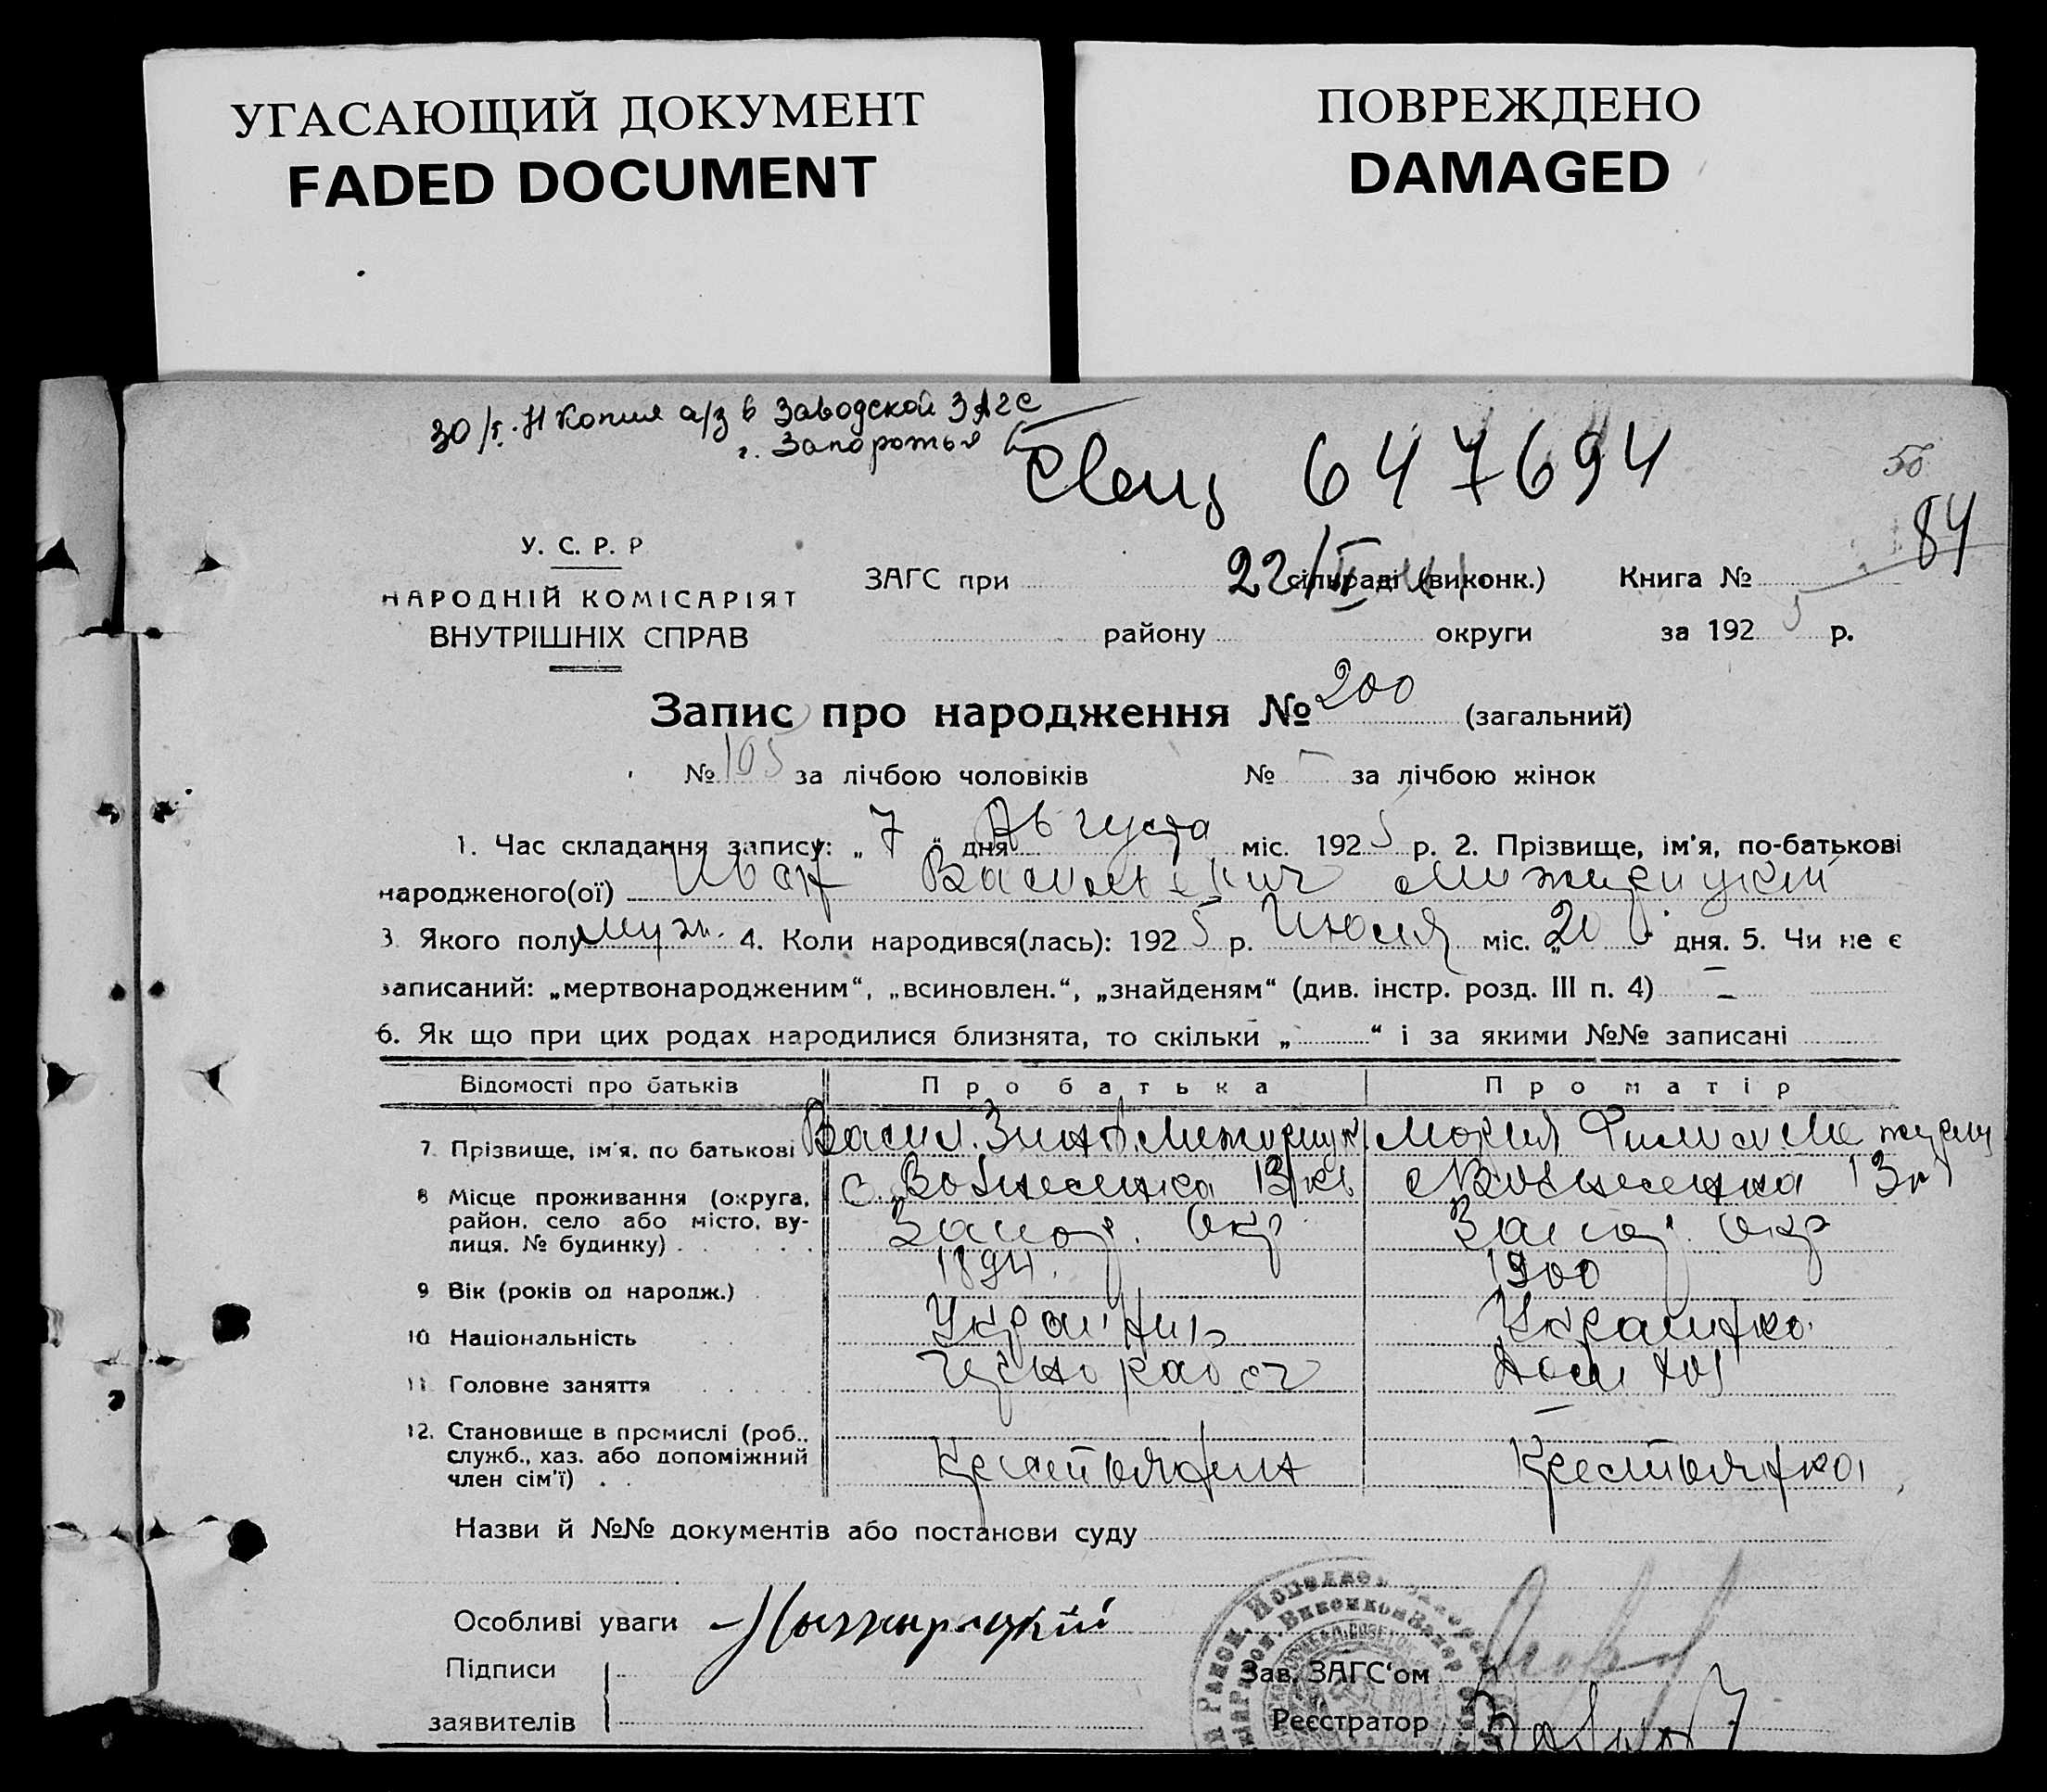 УГАСАЮЩИЙ ДОКУМЕНТ
FADED DOCUMENT
ПОВРЕЖДЕНО
DAMAGED
Копия а/з в Заводской ЗАГС
г. Запорожья
647694
50
84
У. С. Р. Р
НАРОДНІЙ КОМІСАРІЯТ
ВНУТРІШНІХ СПРАВ
ЗАГС при сільраді (виконк.) Книга №
району округи за 1925 р.
Запис про народження № 200 (загальний)
№ 105 за лічбою чоловіків № – за лічбою жінок
1. Час складання запису: „7“ дня Августа міс. 1925 р. 2. Прізвище, ім'я, по-батькові
народженого(ої) Иван Васильевич Мижирицкий
3. Якого полу муж. 4. Коли народився(лась): 1925 р. Июля міс. „20“ дня. 5. Чи не є
записаний: „мертвонародженим“, „всиновлен.“, „знайденям“ (див. інстр. розд. III п. 4) –
6. Як що при цих родах народилися близнята, то скільки „ “ і за якими №№ записані
Відомості про батьків Про батька Про матір
7. Прізвище, ім'я, по батькові Васил. Мария
8 Місце проживання (округа, с. Вознесенка Вознесенка
район, село або місто, ву-
лиця, № будинку) Запор. Окр Запор. Окр
9 Вік (років од народж.) 1894. 1900
10 Національність Украинц Украинка
11 Головне заняття
12. Становище в промислі (роб.,
служб., хаз. або допоміжний
член сім'ї) Крестьянин Крестьянка
Назви й №№ документів або постанови суду
Особливі уваги
Підписи
заявителів
Зав. ЗАГС'ом
Реєстратор